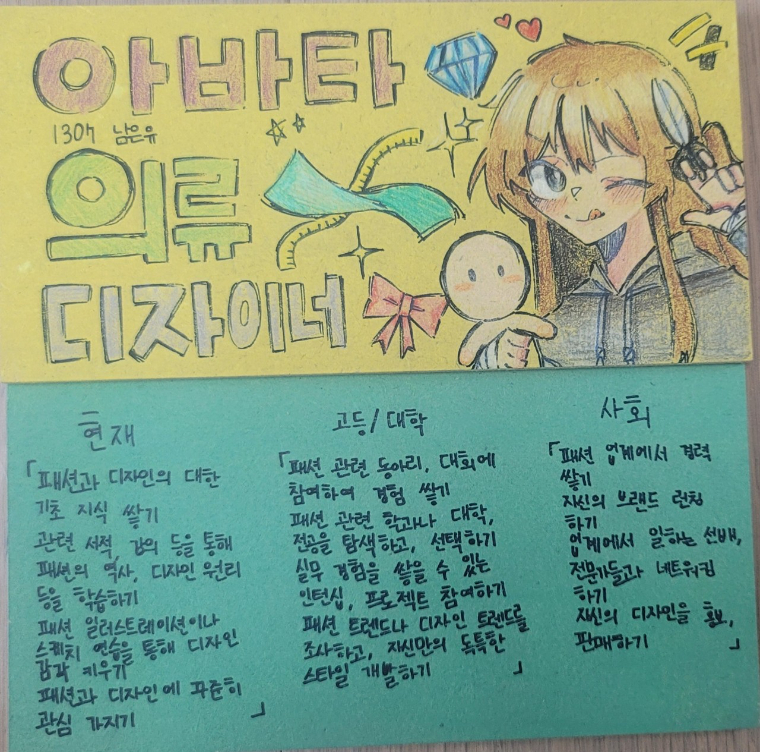 아바타
1307 남은유
의류
디자이너
현재
「패션과 디자인의 대한
기초 지식 쌓기
관련 서적, 강의 등을 통해
패션의 역사, 디자인 원리
등을 학습하기
패션 일러스트레이션이나
스케치 연습을 통해 디자인
감각 키우기
패션과 디자인에 꾸준히
관심 가지기」
고등/대학
「패션 관련 동아리, 대회에
참여하여 경험 쌓기
패션 관련 학과나 대학,
전공을 탐색하고, 선택하기
실무 경험을 쌓을 수 있는
인턴십, 프로젝트 참여하기
패션 트렌드나 디자인 트렌드를
조사하고, 자신만의 독특한
스타일 개발하기」
사회
「패션 업계에서 경력
쌓기
자신의 브랜드 런칭
하기
업계에서 일하는 선배,
전문가들과 네트워킹
하기
자신의 디자인을 홍보,
판매하기」